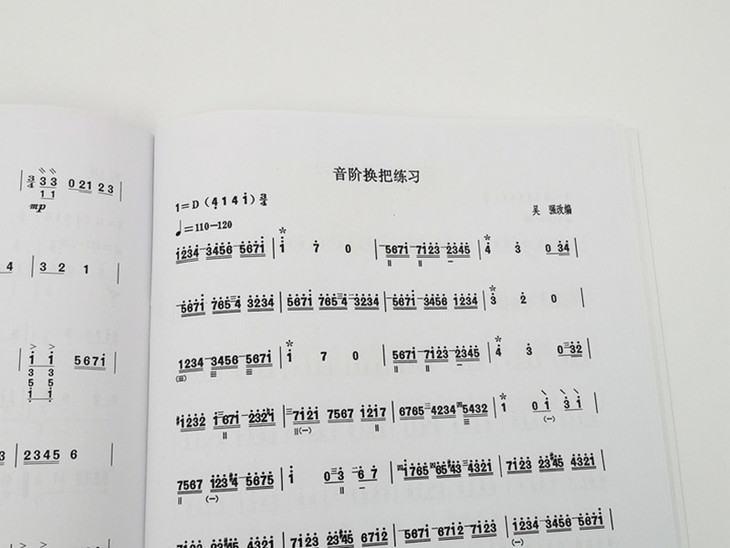 3/4 3 3 0 21 23
1 1
mp
4 | 3 2 1
1 1 5671
3 3
5 5
1 1
3 | 2345 6
音阶换把练习
1=D (4 1 4 1) 3/4
♩=110-120
吴 强改编
1234 3456 5671 | 1 7 0 | 5671 7123 2345 | 4 3 0 34
5671 7654 3234 | 5671 7654 3234 | 5671 3456 1234 | 3 2 0
1234 3456 5671 | 1 7 0 | 5671 7123 2345 | 4 3 0 32
1232 1671 2321 | 7121 7567 1217 | 6765 4234 5432 | 1 0 1 3 1
7567 1234 5675 | 1 0 3 6 7 | 1765 6543 4321 | 7123 2345 4321
7123 2345 6712 | 5671 6712 7123 | 1234 3456 5671